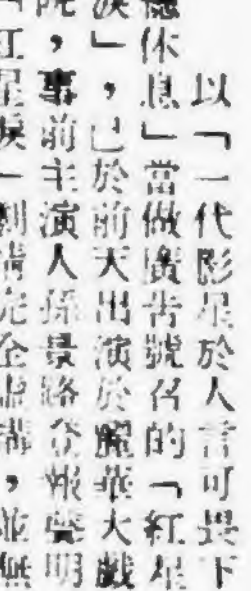 以「一代影星於人言可畏下
息」當做廣告號召的「紅星
淚」,已於前天出演於麗華大戲
院,事前主演人孫景路登報聲明
「紅星淚」劇情完全虛構,並無